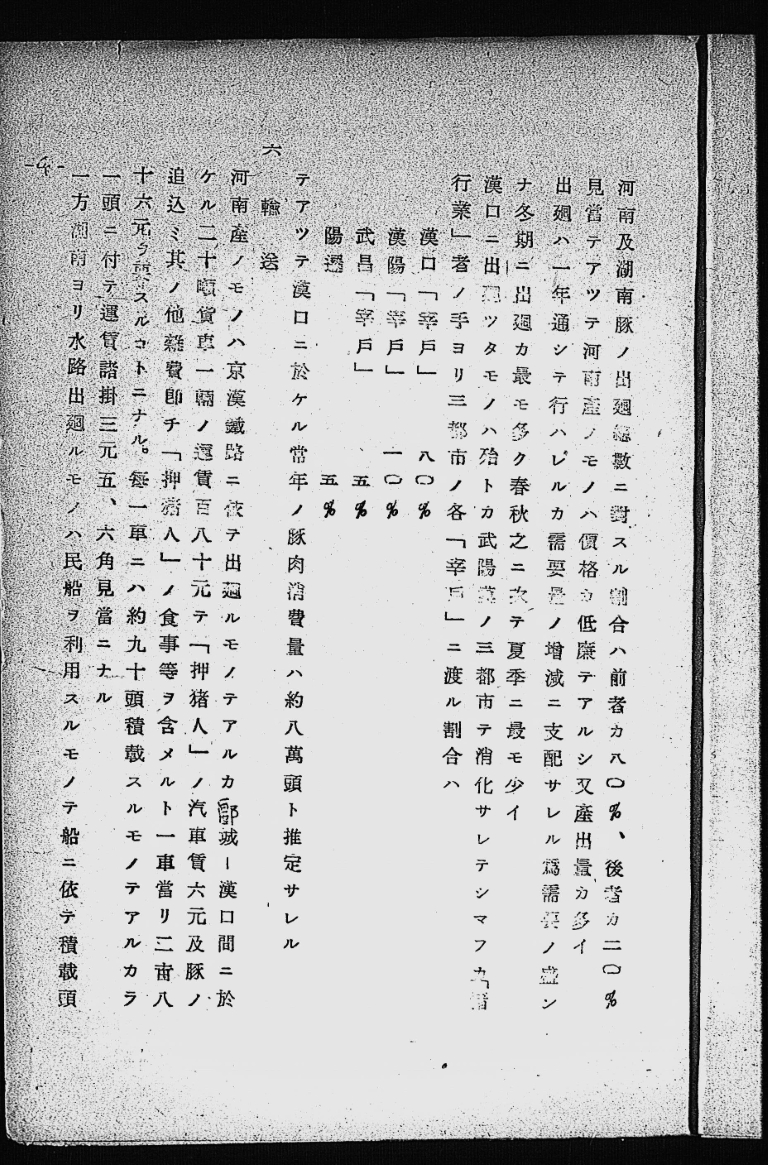 河南及湖南豚ノ出廻總數ニ對スル割合ハ前者カ八〇%、後者カ二〇%
見當テアツテ河南產ノモノハ價格カ低廉テアルシ又產出量カ多イ
出廻ハ一年通シテ行ハレルカ需要量ノ增減ニ支配サレル爲需要ノ盛ン
ナ冬期ニ出廻カ最モ多ク春秋之ニ次テ夏季ニ最モ少イ
漢口ニ出廻ツタモノハ殆トカ武陽漢ノ三都市テ消化サレテシマフカ「猪
行業」者ノ手ヨリ三都市ノ各「宰戶」ニ渡ル割合ハ
漢口「宰戶」 八〇%
漢陽「宰戶」 一〇%
武昌「宰戶」 五%
陽邏 五%
テアツテ漢口ニ於ケル常年ノ豚肉消費量ハ約八萬頭ト推定サレル
六 輸送
河南產ノモノハ京漢鐵路ニ依テ出廻ルモノテアルカ郾城ー漢口間ニ於
ケル二十噸貨車一輛ノ運賃百八十元テ「押猪人」ノ汽車賃六元及豚ノ
追込ミ其ノ他雜費卽チ「押猪人」ノ食事等ヲ含メルト一車當リ三百八
十六元ヲ要スルコトニナル。每一車ニハ約九十頭積載スルモノテアルカラ
一頭ニ付テ運賃諸掛三元五、六角見當ニナル
一方湖南ヨリ水路出廻ルモノハ民船ヲ利用スルモノテ船ニ依テ積載頭
-4-